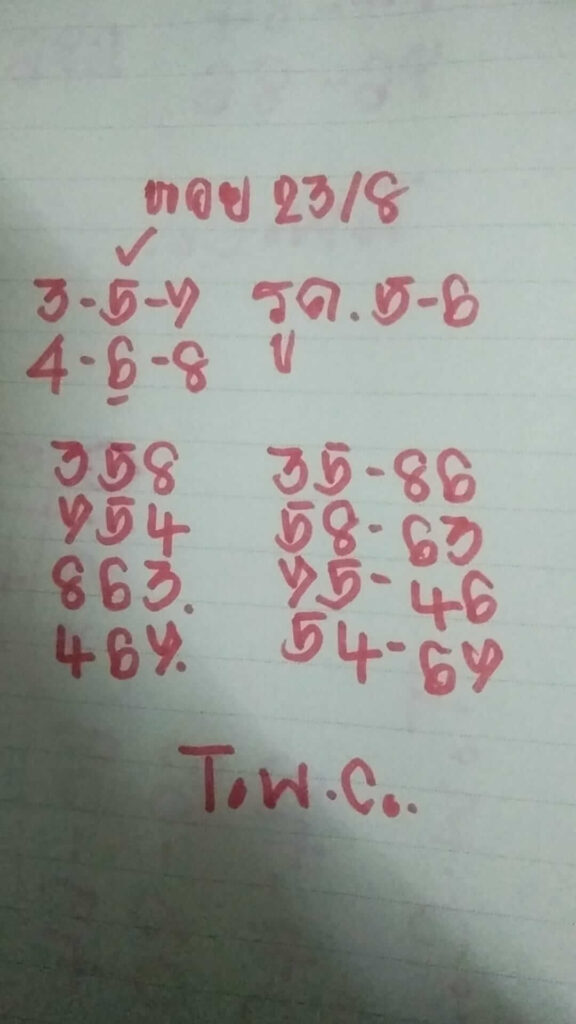 หวย 23/8
✓
3-5-7 รูด. 5-6
4-6-8
358 35-86
754 58-63
863. 75-46
467. 54-67
T.W.C..